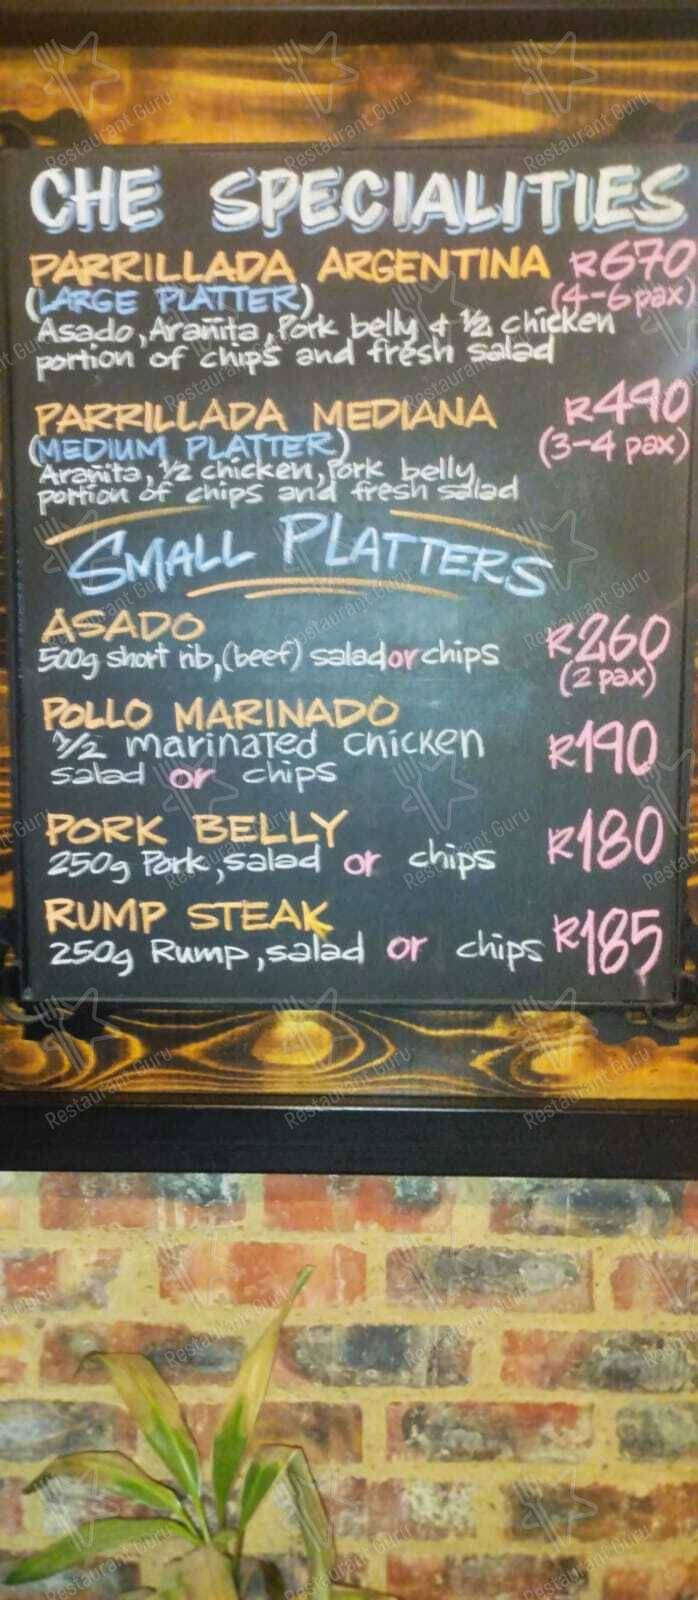 CHE SPECIALITIES
PARRILLADA ARGENTINA R670
(LARGE PLATTER) (4-6 pax)
Asado, Arañita, Pork belly & 1/2 chicken
portion of chips and fresh salad
PARRILLADA MEDIANA R490
(MEDIUM PLATTER) (3-4 pax)
Arañita, 1/2 chicken, Pork belly
portion of chips and fresh salad
SMALL PLATTERS
ASADO R260
500g short rib, (beef) salad or chips (2 pax)
POLLO MARINADO
1/2 marinated chicken R190
salad or chips
PORK BELLY R180
250g Pork, salad or chips
RUMP STEAK R185
250g Rump, salad or chips
Restaurant Guru